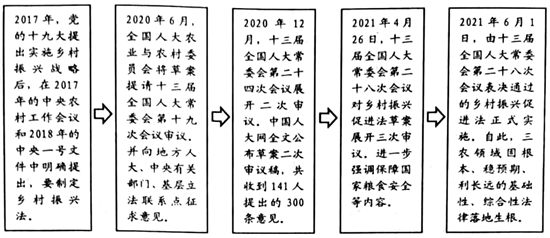 2017年，党
的十九大提
出实施乡村
振兴战略
后，在2017
年的中央农
村工作会议
和2018年的
中央一号文
件中明确提
出，要制定
乡村振兴
法。
2020年6月，
全国人大农
业与农村委
员会将草案
提请十三届
全国人大常
委会第十九
次会议审议。
并向地方人
大、中央有关
部门、基层立
法联系点征
求意见。
2020年12
月，十三届
全国人大常
委会第二十
四次会议展
开二次审
议。中国人
大网全文公
布草案二次
审议稿，共
收到141人
提出的300
条意见。
2021年4月
26日，十三
届全国人大
常委会第二
十八次会议
对乡村振兴
促进法草案
展开三次审
议。进一步
强调保障国
家粮食安全
等内容。
2021年6月1
日，由十三届
全国人大常委
会第二十八次
会议表决通过
的乡村振兴促
进法正式实
施。自此，三
农领域固根
本、稳预期、
利长远的基础
性、综合性法
律落地生根。